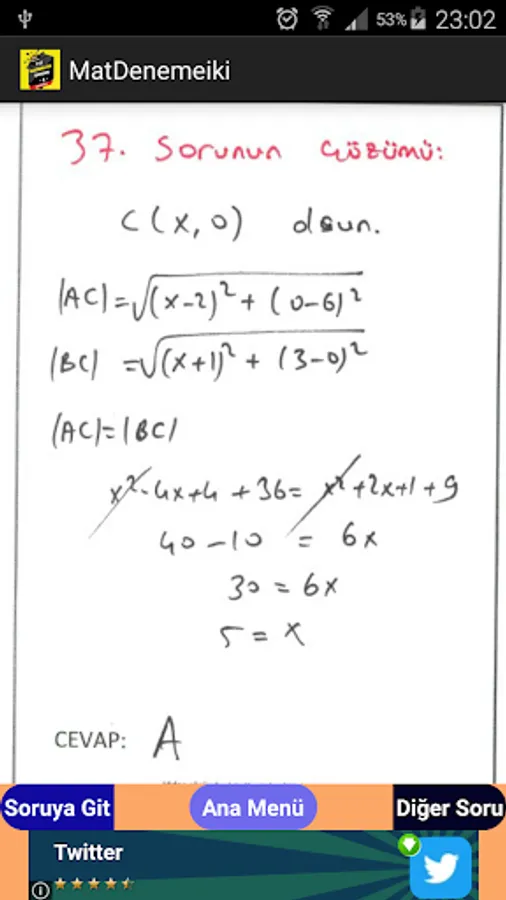 53% 23:02
MatDenemeiki
37. Sorunun Çözümü:
C(x,0) olsun.
|AC|=√(x-2)²+(0-6)²
|BC| =√(x+1)²+(3-0)²
|AC|=|BC|
x²-4x+4+36= x²+2x+1+9
40-10 = 6x
30 = 6x
5 = x
CEVAP: A
Soruya Git
Ana Menü
Diğer Soru
Twitter